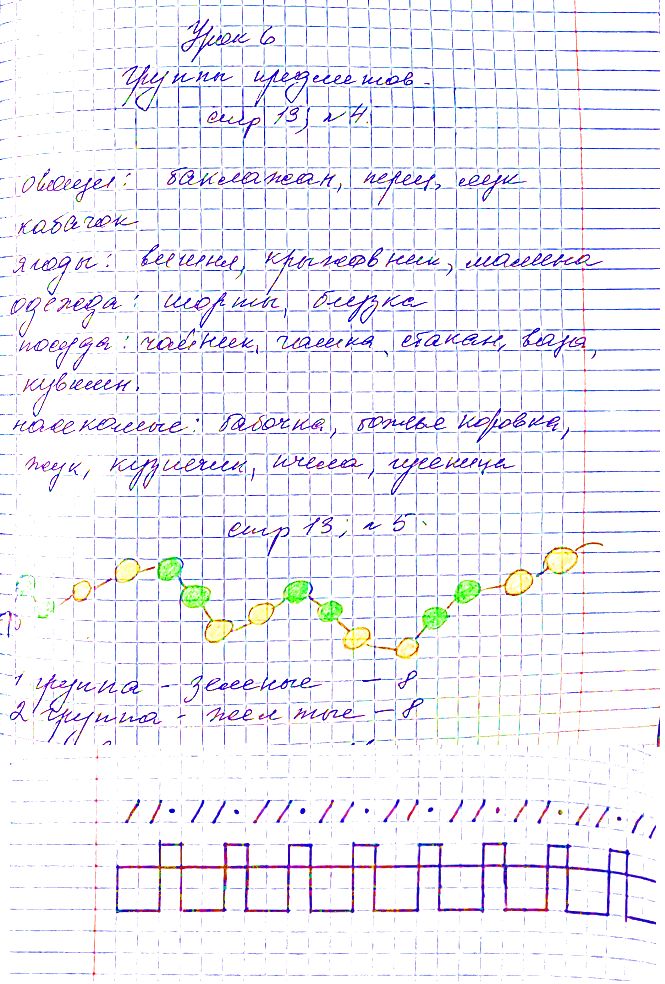 Урок 6
Группы предметов.
стр 13; №4.
овощи: баклажан, перец, лук
кабачок
ягоды: вишня, крыжовник, малина
одежда: шорты, блузка
посуда: чайник, чашка, стакан, ваза,
кувшин.
насекомые: бабочка, божье коровка,
жук, кузнечик, пчела, гусеница
стр 13; №5.
1 группа - зеленые - 8
2 группа - желтые - 8